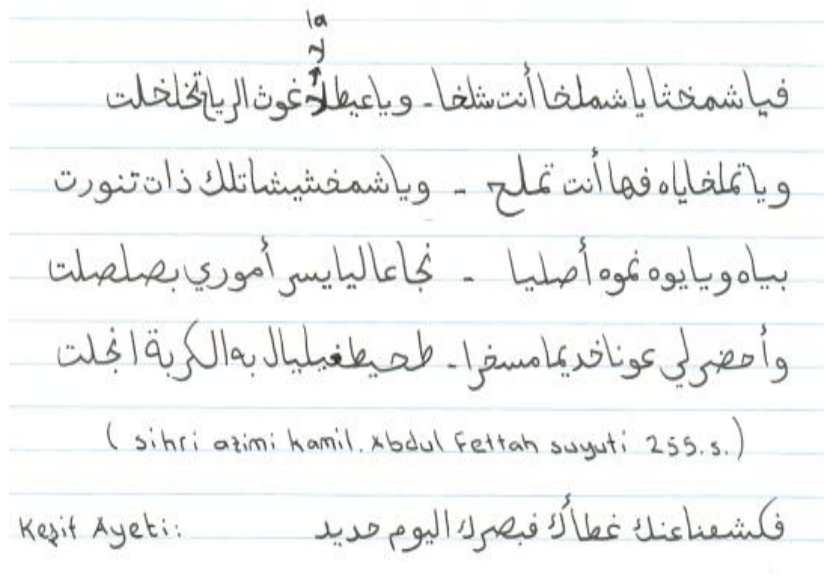 la
لا
فيا شمخثا يا شملخا أنت شلخا - ويا عيطلا غوث الرياح تخلخلت
ويا تملخاياه فها أنت تملح - ويا شمخشيشا تلك ذات تنورت
بياه ويا يوه نموه أصليا - نجا عاليا يسر أموري بصلصلت
وأحضر لي عونا خديما مسخرا - طحيطغيليال به الكربة انجلت
(sihri azimi kamil. Abdul Fettah suyuti 255.s.)
Keşif Ayeti: فكشفنا عنك غطاأك فبصرك اليوم حديد